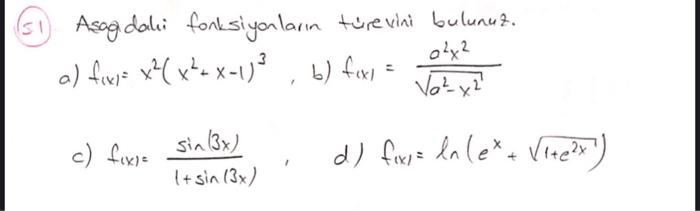 S1 Aşağıdaki fonksiyonların türevini bulunuz.
a) f(x)= x²(x²+x-1)³ , b) f(x) = a²x² / √(a²-x²)
c) f(x)= sin(3x) / 1+sin(3x) , d) f(x)= ln(eˣ + √(1+e²ˣ))